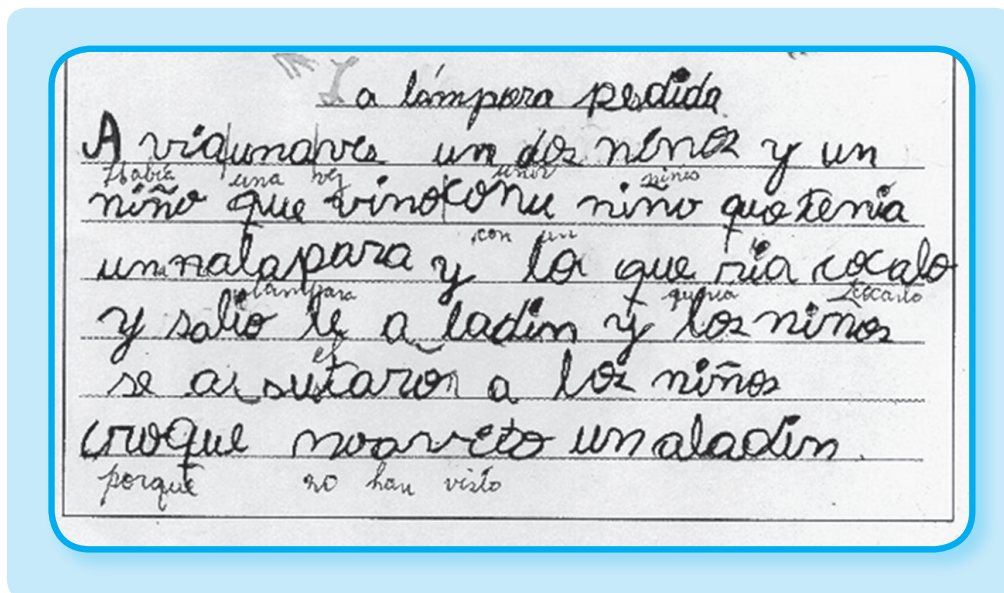 La lámpara pedida
A viaunaves un dos niños y un
Había una vez unos niños
niño que vinoconu niño que tenia
con un
unnalapara y lo que ria cocalo
lámpara quería tocarlo
y salio le a ladin y los niños
el
se aisutaron a los niños
croque noaveto un aladin
porque no han visto